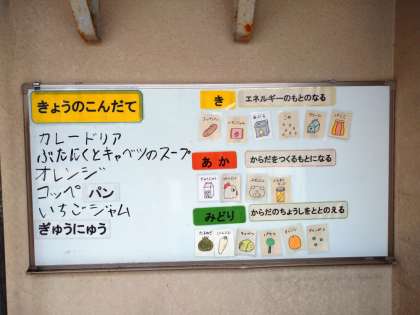 きょうのこんだて
カレードリア
ぶたにくとキャベツのスープ
オレンジ
コッペパン
いちごジャム
ぎゅうにゅう
き
エネルギーのもとのなる
あか
からだをつくるもとになる
みどり
からだのちょうしをととのえる